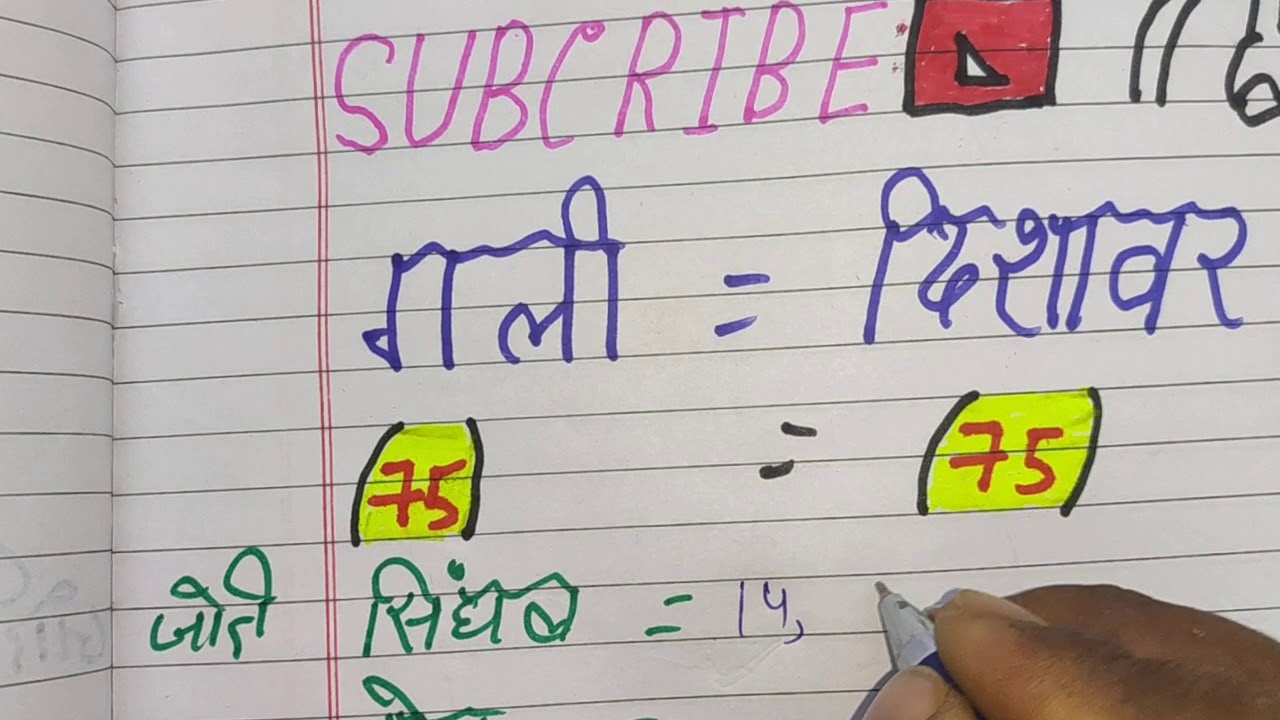 SUBCRIBE
गली = दिशावर
75 = 75
जोडी सिंघल = 14,